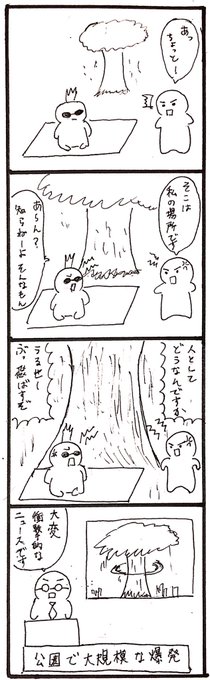 あっ
ちょっとー
そこは
私の場所です
あ～ん?
知らねーよ そんなもん
人として
どうなんですか
うる世ー
ぶっ飛ばすぞ
大変
衝撃的な
ニュースです
公園で大規模な爆発